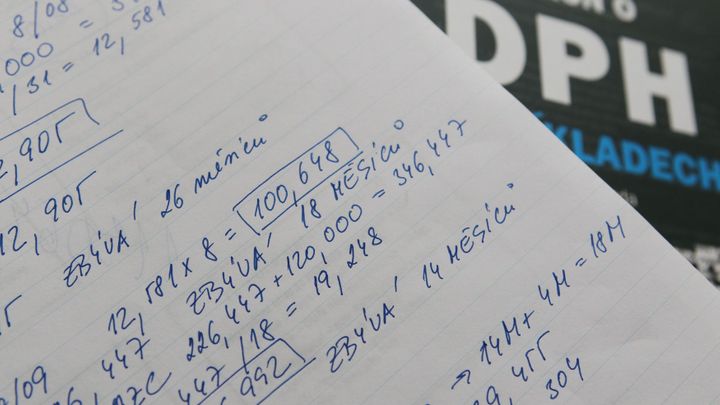 8/08
000 =
/31 = 12,581
2,905
12,905
ZBÝVÁ 26 měsíců
12,581 x 8 = 100,648
ZBÝVÁ 18 MĚSÍCŮ
447 226,447 + 120,000 = 346,447
447/18 = 19,248
992 ZBÝVÁ 14 MĚSÍCŮ
/09
→ 14M + 4M = 18M
455
304
O
DPH
KLADECH